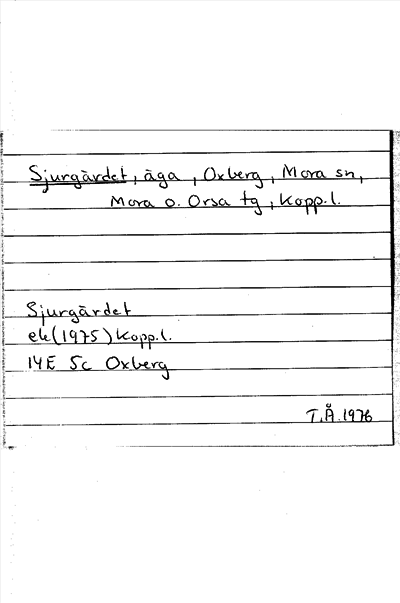 Sjurgärdet, äga, Oxberg, Mora sn,
Mora o. Orsa tg, Kopp.l.
Sjurgärdet
ek(1975) Kopp.l.
14E 5c Oxberg
T.Å.1976